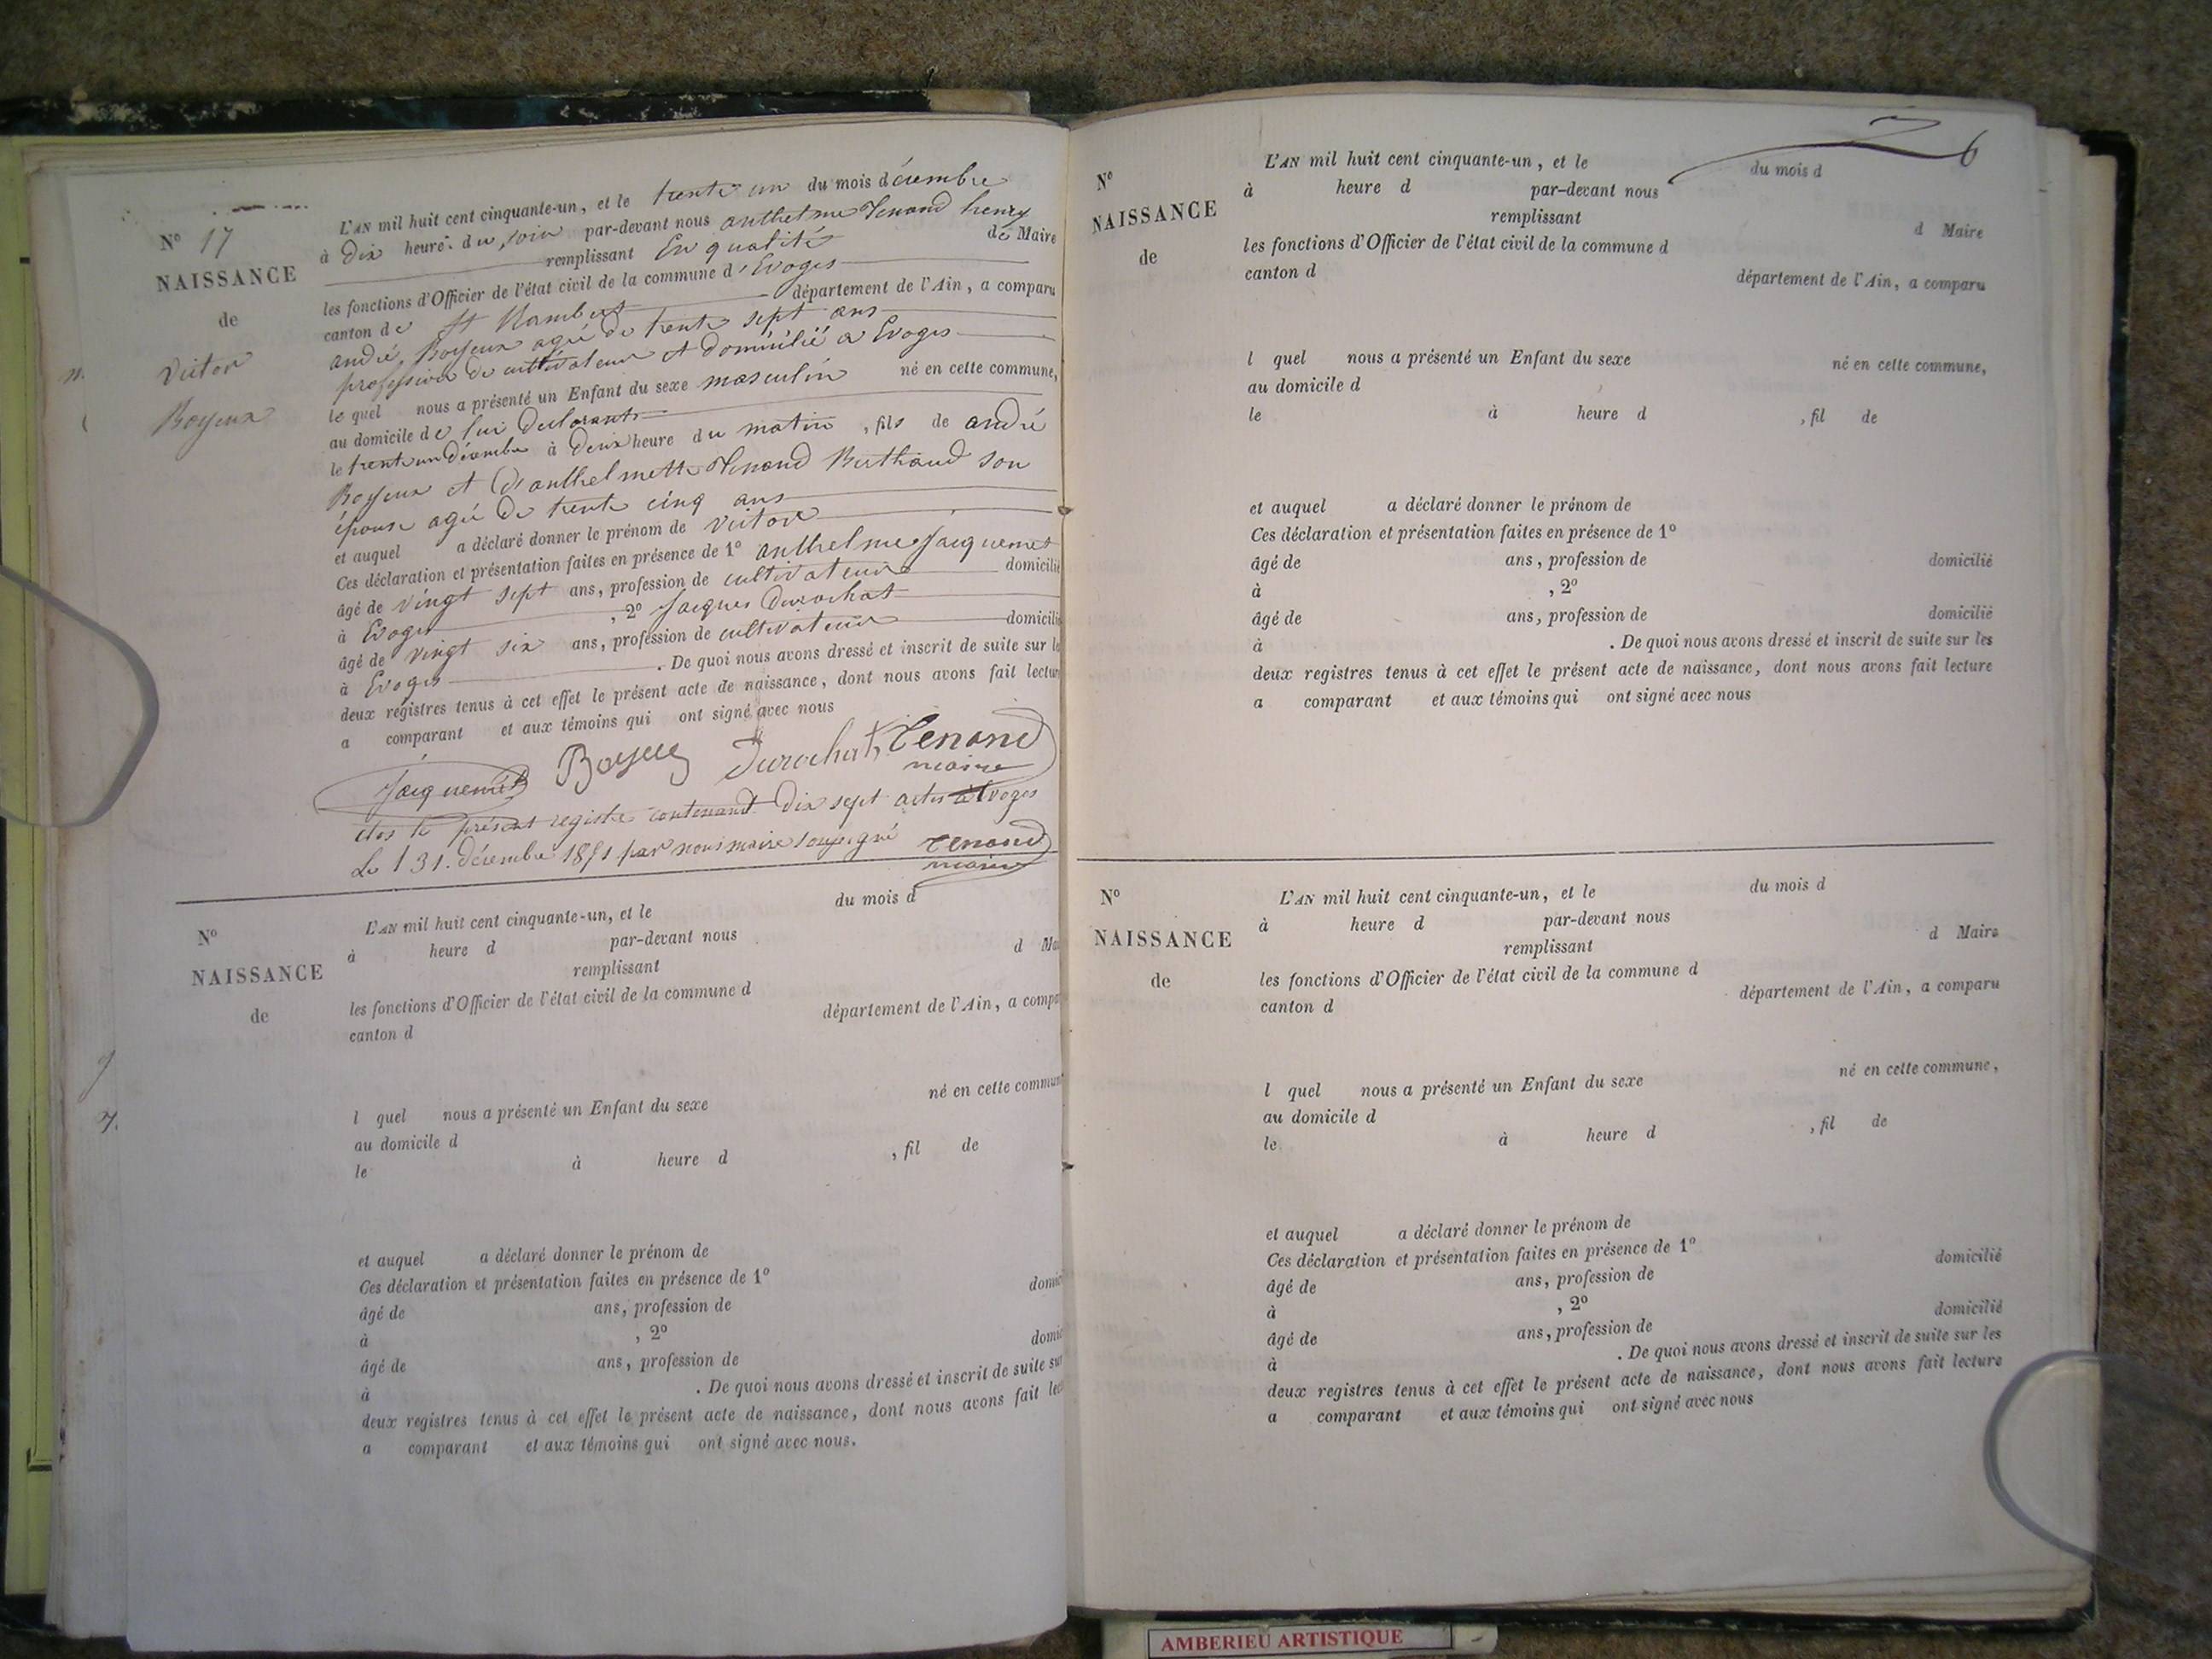 N° 17
NAISSANCE
de
Victor
Boyeux
L'AN mil huit cent cinquante-un, et le trente un du mois décembre
à Dix heure. du soir par-devant nous anthelme Tenand henry
remplissant En qualité de Maire
les fonctions d'Officier de l'état civil de la commune d'Evoges
canton de St Rambert département de l'Ain, a comparu
andré Boyeux agé de trente sept ans
profession de cultivateur et domicilié a Evoges
le quel nous a présenté un Enfant du sexe masculin né en cette commune,
au domicile de lui Declarant
le trente un décembre à Deux heure du matin, fils de andré
Boyeux et D'anthelmette Tenand Berthaud son
épouse agée de trente cinq ans
et auquel a déclaré donner le prénom de Victor
Ces déclaration et présentation faites en présence de 1° anthelme Jacquemet
âgé de vingt sept ans, profession de cultivateur domicilié
à Evoges, 2° Jacques Durochat
âgé de vingt six ans, profession de cultivateur domicilié
à Evoges. De quoi nous avons dressé et inscrit de suite sur le
deux registres tenus à cet effet le présent acte de naissance, dont nous avons fait lectur
a comparant et aux témoins qui ont signé avec nous
Jacquemet Boyeux Durochat Tenand
maire
clos le présent registre contenant Dix sept actes à Evoges
Le 31. décembre 1851 par nous maire soussigné Tenand
maire
N°
NAISSANCE
de
L'AN mil huit cent cinquante-un, et le du mois d
à heure d par-devant nous
remplissant d Mai
les fonctions d'Officier de l'état civil de la commune d
canton d département de l'Ain, a compa
l quel nous a présenté un Enfant du sexe né en cette commun
au domicile d
le à heure d , fil de
et auquel a déclaré donner le prénom de
Ces déclaration et présentation faites en présence de 1°
âgé de ans, profession de domic
à , 2°
âgé de ans, profession de domic
à . De quoi nous avons dressé et inscrit de suite sur
deux registres tenus à cet effet le présent acte de naissance, dont nous avons fait lec
a comparant et aux témoins qui ont signé avec nous.
6
N°
NAISSANCE
de
L'AN mil huit cent cinquante-un, et le du mois d
à heure d par-devant nous
remplissant d Maire
les fonctions d'Officier de l'état civil de la commune d
canton d département de l'Ain, a comparu
l quel nous a présenté un Enfant du sexe né en cette commune,
au domicile d
le à heure d , fil de
et auquel a déclaré donner le prénom de
Ces déclaration et présentation faites en présence de 1°
âgé de ans, profession de domicilié
à , 2°
âgé de ans, profession de domicilié
à . De quoi nous avons dressé et inscrit de suite sur les
deux registres tenus à cet effet le présent acte de naissance, dont nous avons fait lecture
a comparant et aux témoins qui ont signé avec nous
N°
NAISSANCE
de
L'AN mil huit cent cinquante-un, et le du mois d
à heure d par-devant nous
remplissant d Maire
les fonctions d'Officier de l'état civil de la commune d
canton d département de l'Ain, a comparu
l quel nous a présenté un Enfant du sexe né en cette commune,
au domicile d
le à heure d , fil de
et auquel a déclaré donner le prénom de
Ces déclaration et présentation faites en présence de 1°
âgé de ans, profession de domicilié
à , 2°
âgé de ans, profession de domicilié
à . De quoi nous avons dressé et inscrit de suite sur les
deux registres tenus à cet effet le présent acte de naissance, dont nous avons fait lecture
a comparant et aux témoins qui ont signé avec nous
AMBERIEU ARTISTIQUE